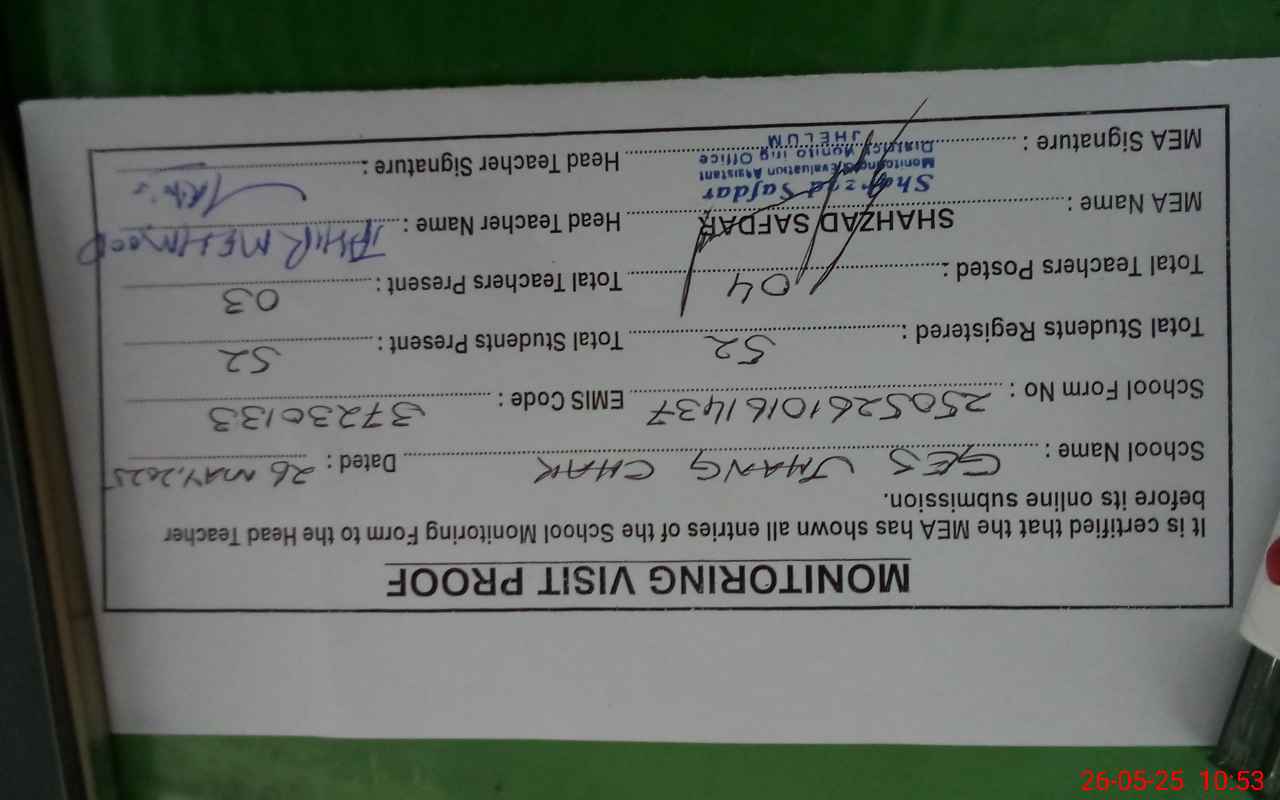 MONITORING VISIT PROOF
It is certified that the MEA has shown all entries of the School Monitoring Form to the Head Teacher
before its online submission.
School Name : GES JHANG CHAK Dated : 26 MAY, 2025
School Form No : 2505261016 1437 EMIS Code : 37230133
Total Students Registered : 52 Total Students Present : 52
Total Teachers Posted : 04 Total Teachers Present : 03
MEA Name : SHAHZAD SAFDAR Head Teacher Name : TAHIR MEHMOOD
Shahzad Safdar
Monitoring & Evaluation Assistant
MEA Signature : Head Teacher Signature :
District Monitoring Office
JHELUM
26-05-25 10:53